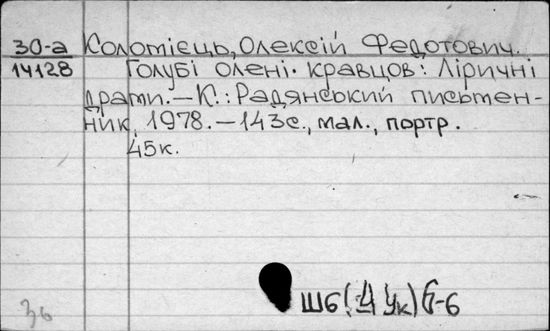 30-а Коломієць, Олексій Федотович.
14128 Голубі олені. Кравцов: Ліричні
драми.—К.: Радянський письмен-
ник, 1978.—143с., мал., портр.
45к.
Ш6(4Ук)6-6
36